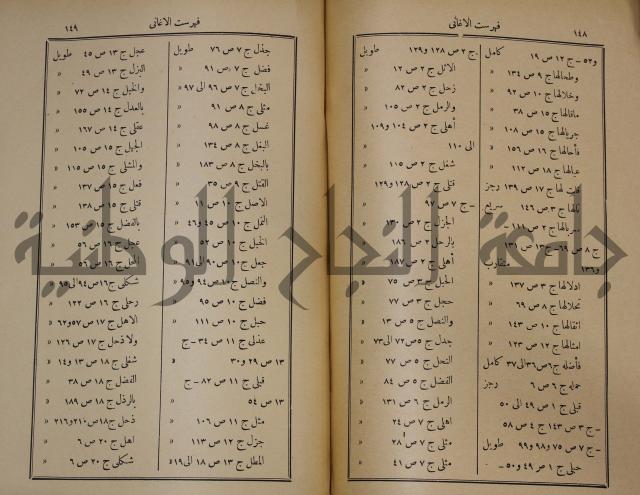 ١٤٨
فهرست الاغانى
و٥٢ – ج ١٢ ص ١٩ كامل
وطحالها ج ٩ ص ١٣٤ »
وخلالها ج ١٠ ص ٩٢ »
ماقالها ج ١٥ ص ٣٨ »
جريالها ج ١٥ ص ١٠٨ »
فأحالها ج ١٦ ص ١٥٦ »
عيالها ج ١٨ ص ١١٢ »
قلت لها ج ١٧ ص ١٣٩ رجز
لها ج ٣ ص ١٤٦ سريع
سربالها ج ٢ ص ١١١ –
ج ٨ ص ٦٩ – ج ١٣ ص ١٣١
و١٣٦ متقارب
اذلالها ج ٣ ص ١٣٧ »
تخلالها ج ٨ ص ٦٩ »
اثقالها ج ١٠ ص ١٤٣ »
امثالها ج ١٢ ص ١٢٣ »
فأضله ج ٦ ص ٣٦ الى ٣٧ كامل
حمله ج ٦ ص ٦ رجز
قبلى ج ١ ص ٤٩ الى ٥٠
– ج ٣ ص ١٤٣ ج ٤ ص ٥٨
– ج ٧ ص ٧٥ و٩٨ و٩٩ طويل
حبلى ج ١ ص ٤٩ و٥٠ –
ج ٢ ص ١٢٨ و١٢٩ طويل
الاثل ج ٢ ص ١٢ »
زحل ج ٢ ص ٨٢ »
والرمل ج ٢ ص ١٠٥ »
أهلى ج ٢ ص ١٠٤ و١٠٩
الى ١١٠ »
شغل ج ٢ ص ١١٥ »
قتلى ج ٢ ص ١٢٨ و١٢٩
– ج ٧ ص ٩٧ »
الجزل ج ٢ ص ١٣٠ »
بالرحل ج ٢ ص ١٨٦ »
أهلى ج ٢ ص ١٨٧ »
الحبل ج ٣ ص ٧٥ »
حجل ج ٣ ص ٧٧ »
والنصل ج ٥ ص ١٣ »
جدل ج ٥ ص ٧٢ الى ٧٣ »
النحل ج ٥ ص ٧٧ »
الفضل ج ٥ ص ٨٤ »
الرمل ج ٦ ص ١٣١ »
اهلى ج ٧ ص ٢٤ »
مثلى ج ٧ ص ٢٨ »
مثلى ج ٧ ص ٤١ »
فهرست الاغانى
١٤٩
جذل ج ٧ ص ٧٦ طويل
فضل ج ٧ ص ٩١ »
البخل ج ٧ ص ٩٦ الى ٩٧ »
مثلى ج ٨ ص ٩١ »
غسل ج ٨ ص ٩٨ »
البغل ج ٨ ص ١٣٤ »
بالبخل ج ٨ ص ١٨٣ »
القتل ج ٩ ص ٣٥ »
الاصل ج ١٠ ص ١١ »
النمل ج ١٠ ص ٤٥ و٤٦ »
الخبل ج ١٠ ص ٥٢ »
جعل ج ١٠ ص ٩٠ الى ٩١ »
والنصل ج ١٠ ص ٩٤ و٩٥ »
فضل ج ١٠ ص ٩٥ »
حبل ج ١٠ ص ١١١ »
عذلى ج ١١ ص ٣٤ – ج
١٣ ص ٢٩ و٣٠ »
قبلى ج ١١ ص ٨٢ – ج
١٣ ص ٥٤ »
مثل ج ١١ ص ١٠٦ »
جزل ج ١٢ ص ١١٣ »
المطل ج ١٣ ص ١٨ الى ١٩ »
عجل ج ١٣ ص ٤٥ طويل
البزل ج ١٣ ص ٤٩ »
والخيل ج ١٤ ص ٧٢ »
بالعدل ج ١٤ ص ١٥٥ »
عقلى ج ١٤ ص ١٦٧ »
الجهل ج ١٥ ص ١٠٥ »
والمشلى ج ١٥ ص ١١٥ »
فعل ج ١٥ ص ١٣٧ »
قتلى ج ١٥ ص ١٣٨ »
بالفضل ج ١٥ ص ١٥٣ »
عجل ج ١٦ ص ٥٦ »
اهلى ج ١٦ ص ٥٦ »
شكلى ج ١٦ ص ٩٤ الى ٩٥ »
رحلى ج ١٦ ص ١٢٢ »
الاهل ج ١٧ ص ٥٧ و٦٢ »
ولا ذحل ج ١٧ ص ١٢٦ »
شغلى ج ١٨ ص ١٣ و١٤ »
الفضل ج ١٨ ص ٣٨ »
بالرذل ج ١٨ ص ١٨٩ »
ذحل ج ١٨ ص ٢١٠ و٢١٦ »
اهل ج ٢٠ ص ٦ »
شكلى ج ٢٠ ص ٦ »
جامعة النجاح الوطنية